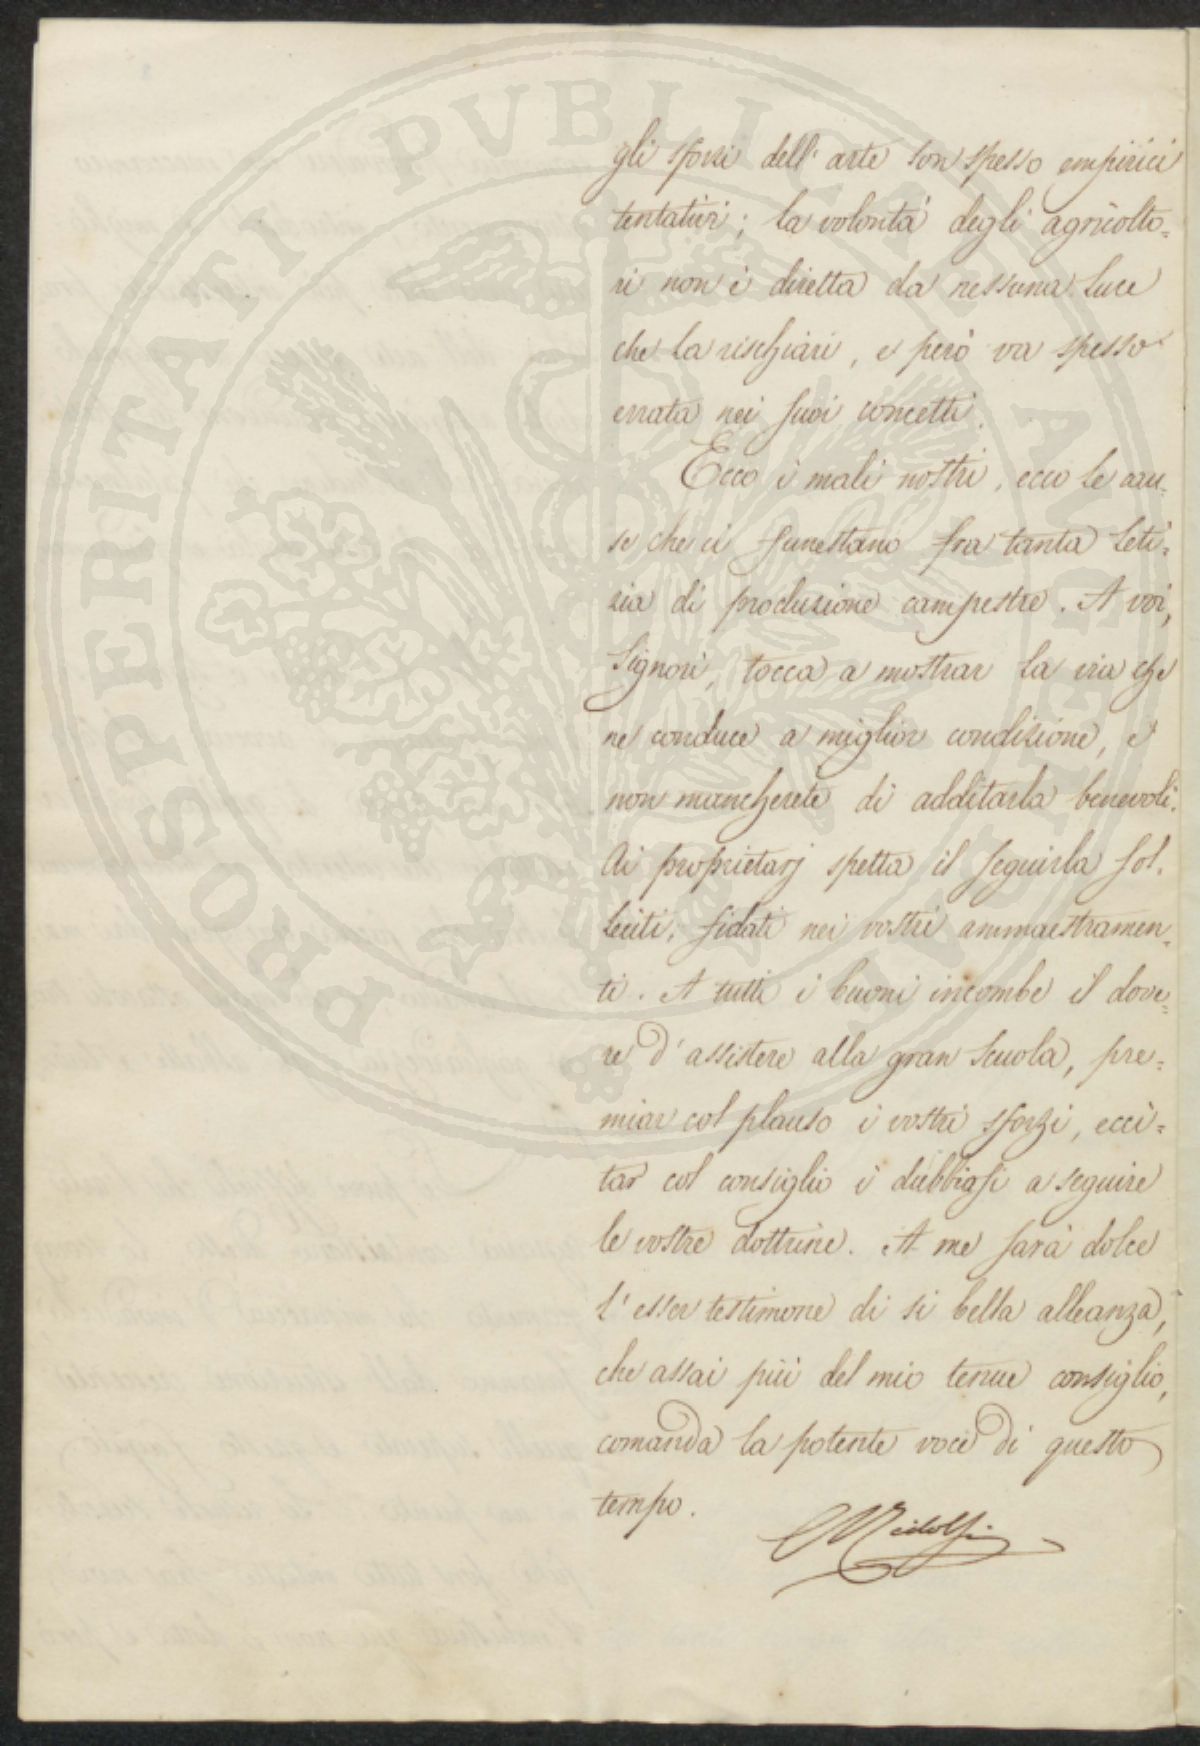 PROSPERITATI PVBLICAE AVGENDAE
gli sforzi dell'arte son spesso empirici
tentativi; la volontà degli agricolto=
ri non è diretta da nessuna luce
che la rischiari, e però va spesso
errata nei suoi concetti.
Ecco i mali nostri, ecco le cau=
se che ci funestano fra tanta leti=
zia di produzione campestre. A voi,
Signori, tocca a mostrar la via che
ne conduce a miglior condizione, e
non mancherete di additarla benevoli.
Ai proprietarj spetta il seguirla sol=
leciti, fidati nei vostri ammaestramen=
ti. A tutti i buoni incombe il dove=
re d'assistere alla gran Scuola, pre=
miar col plauso i vostri sforzi, ecci=
tar col consiglio i dubbiosi a seguire
le vostre dottrine. A me sarà dolce
l'esser testimone di si bella alleanza,
che assai più del mio tenue consiglio,
comanda la potente voce di questo
tempo.
C Ridolfi